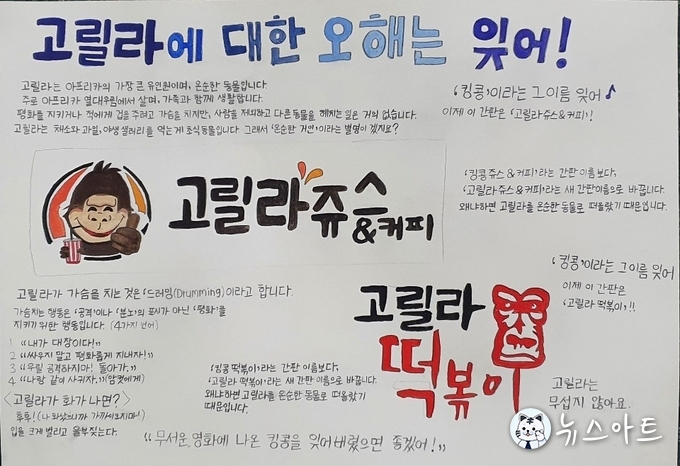 고릴라에 대한 오해는 잊어!
고릴라는 아프리카의 가장 큰 유인원이며, 온순한 동물입니다.
주로 아프리카 열대우림에서 살며, 가족과 함께 생활합니다.
평화를 지키거나 적에게 겁을 주려고 가슴을 치지만, 사람을 제외하고 다른 동물을 해치는 일은 거의 없습니다.
고릴라는 채소와 과일, 야생 샐러리를 먹는 게 초식동물입니다. 그래서 '온순한 거인'이라는 별명이 있겠지요?
'킹콩'이라는 그 이름 잊어♪
이제 이 간판은 '고릴라쥬스&커피'!
고릴라쥬스
&커피
'킹콩쥬스&커피'라는 간판 이름보다,
'고릴라쥬스&커피'라는 새 간판이름으로 바꿉니다.
왜냐하면 고릴라를 온순한 동물로 떠올랐기 때문입니다.
고릴라가 가슴을 치는 것은 '드러밍(Drumming)'이라고 합니다.
가슴치는 행동은 '공격'이나 '분노'의 표시가 아닌 '평화'를
지키기 위한 행동입니다. (4가지 언어)
1 "내가 대장이다!"
2 "싸우지 말고 평화롭게 지내자!"
3 "우릴 공격하지마! 돌아가."
4 "나랑 같이 사귀자."(암컷에게)
<고릴라가 화가 나면?>
후후! (나 화났으니까 가까이오지마!)
입을 크게 벌리고 울부짖는다.
고릴라
떡볶이
'킹콩 떡볶이'라는 간판 이름보다,
'고릴라 떡볶이'라는 새 간판 이름으로 바꿉니다.
왜냐하면 고릴라를 온순한 동물로 떠올랐기
때문입니다.
'킹콩'이라는 그 이름 잊어
이제 이 간판은
'고릴라 떡볶이'!!
고릴라는
무섭지 않아요.
"무서운 영화에 나온 킹콩을 잊어버렸으면 좋겠어!"
뉴스아트